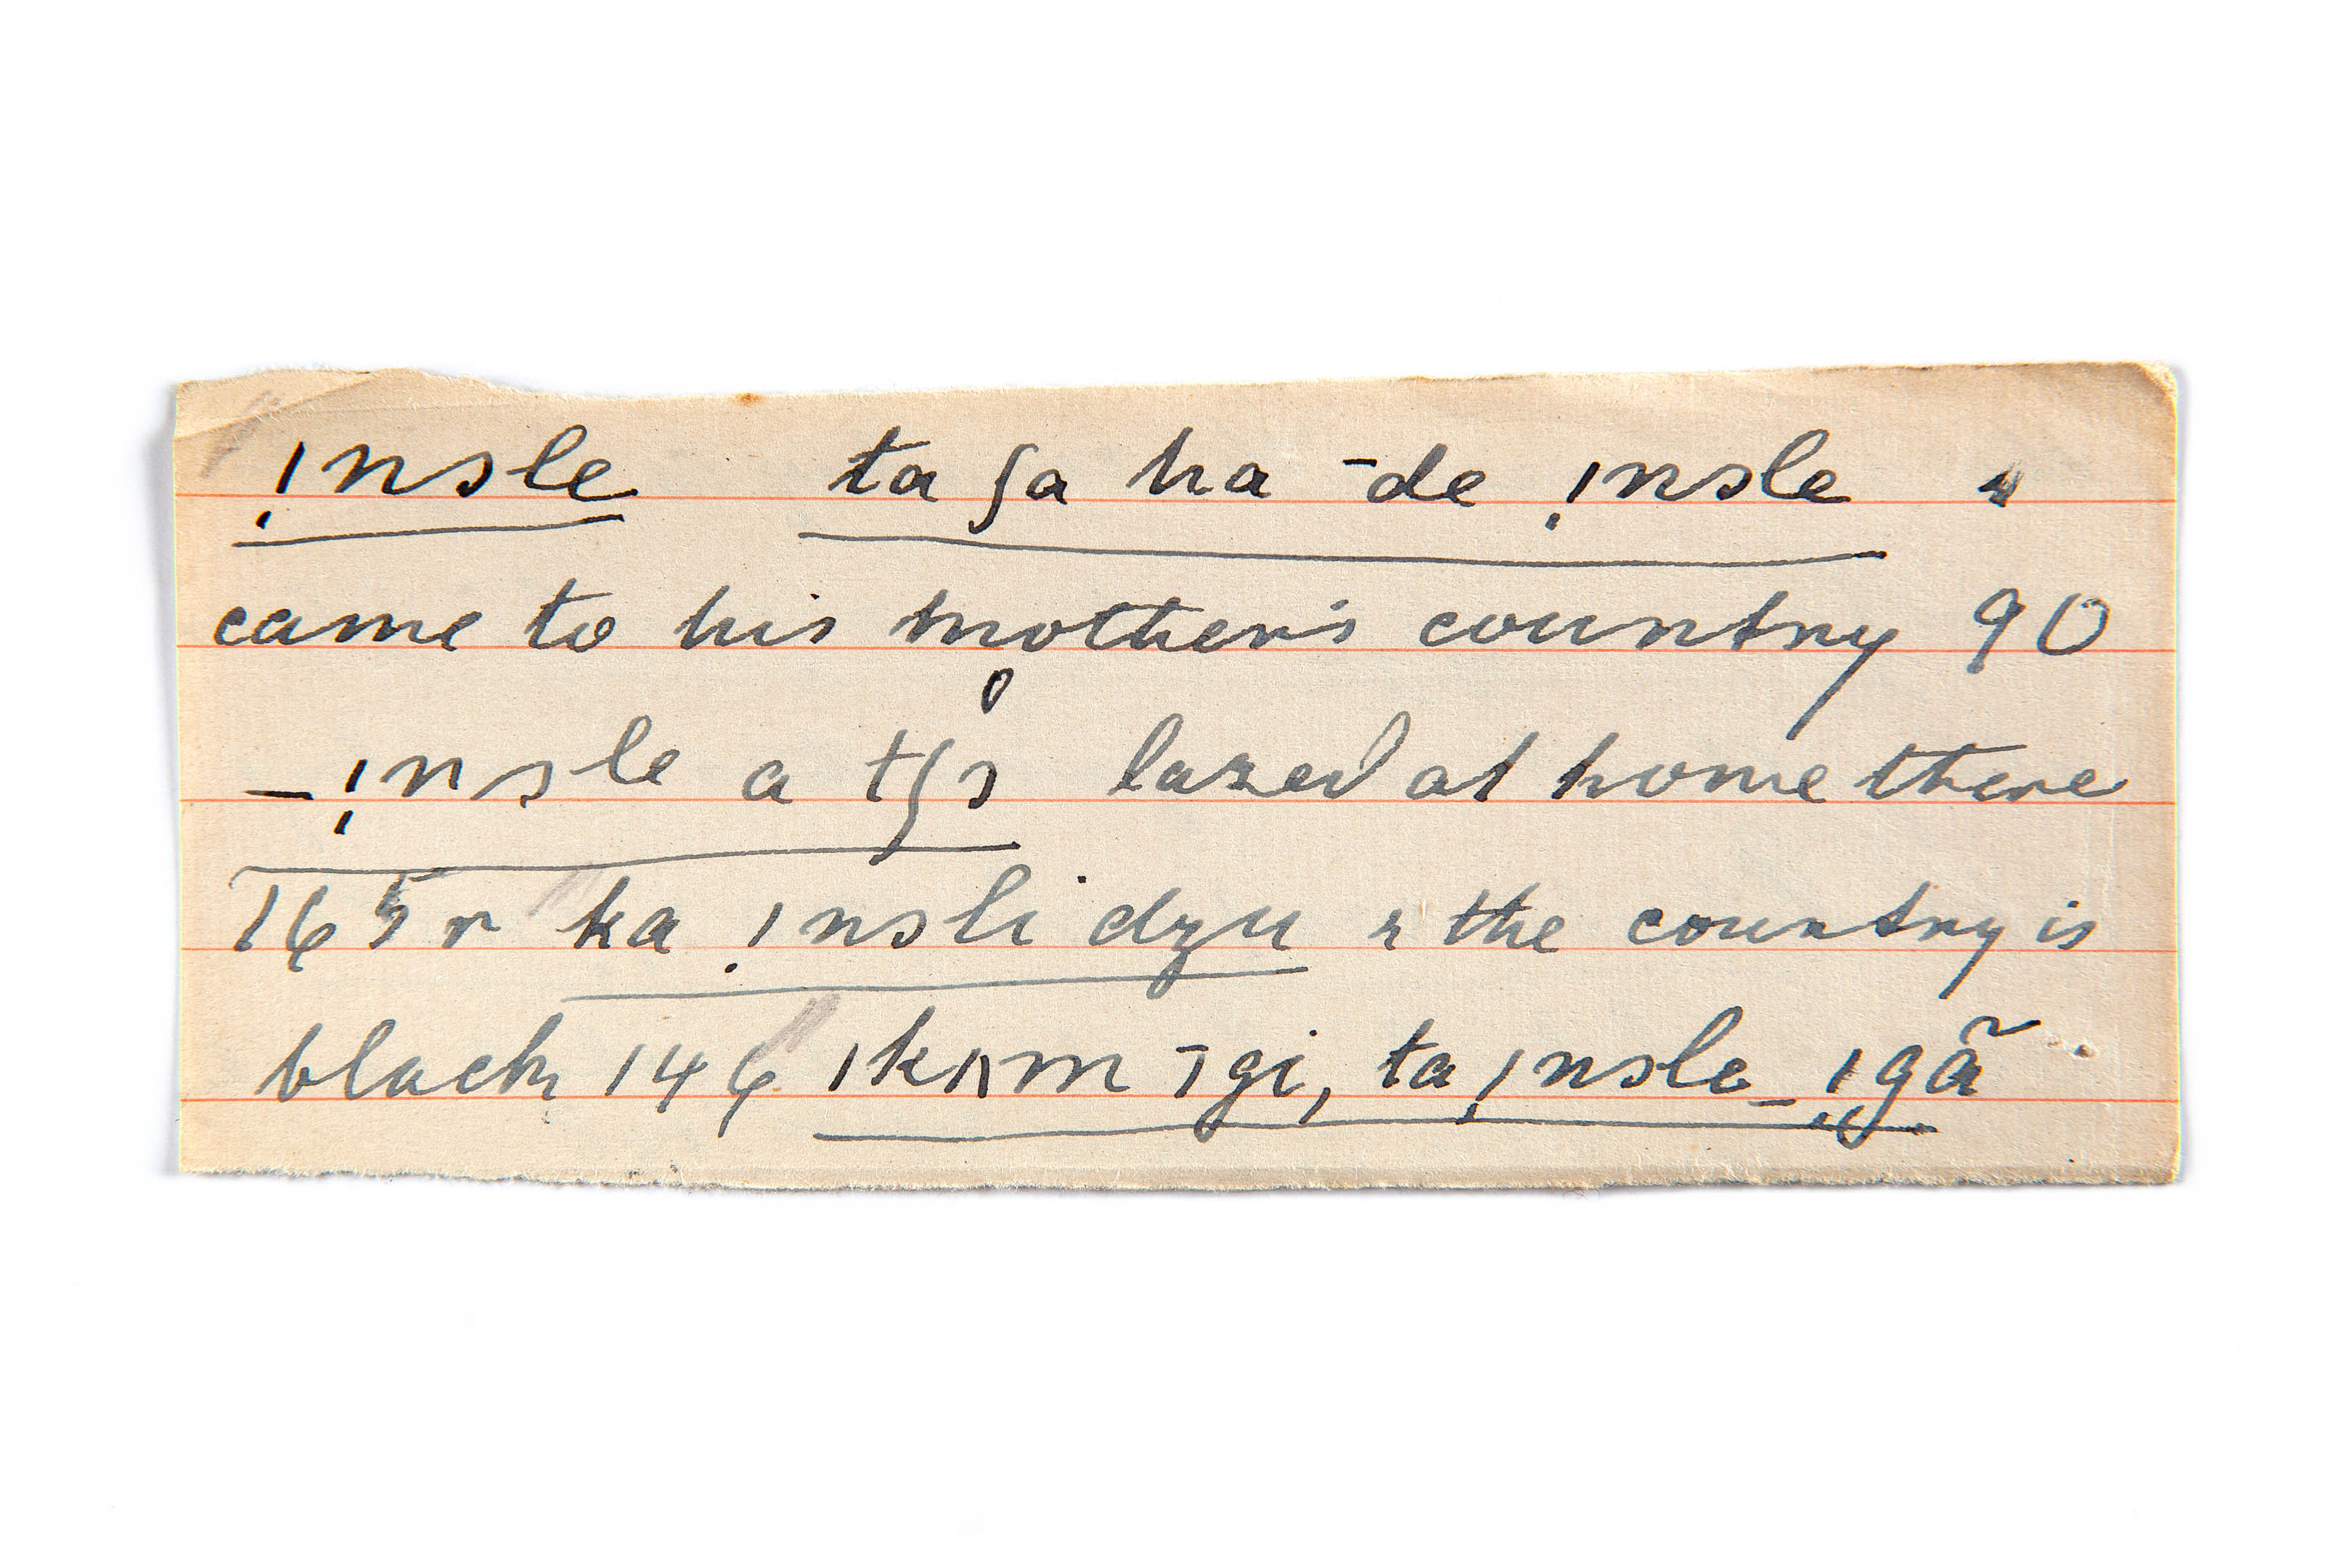 ı̣nsle taʃa ha ‾de ı̣nsle
came to his mother's country 90
_ı̣nsle a tʃɔ lazed at home there
165r ka ı̣nsli dzu r the country is
black 146 ıkʌm ‾ıgi, ta ı̣nsle_ı̣gã